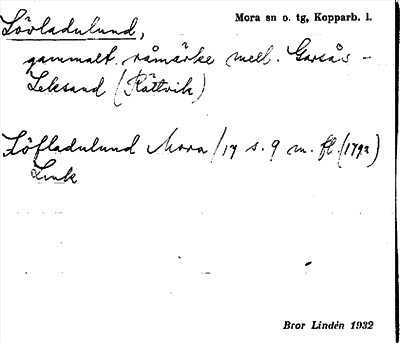 Lövladulund, Mora sn o. tg, Kopparb. l.
gammalt råmärke mell. Garsås -
Leksand (Rättvik)
Löfladulund Mora /17 s. 9 m. fl. (1792)
Link
Bror Lindén 1932